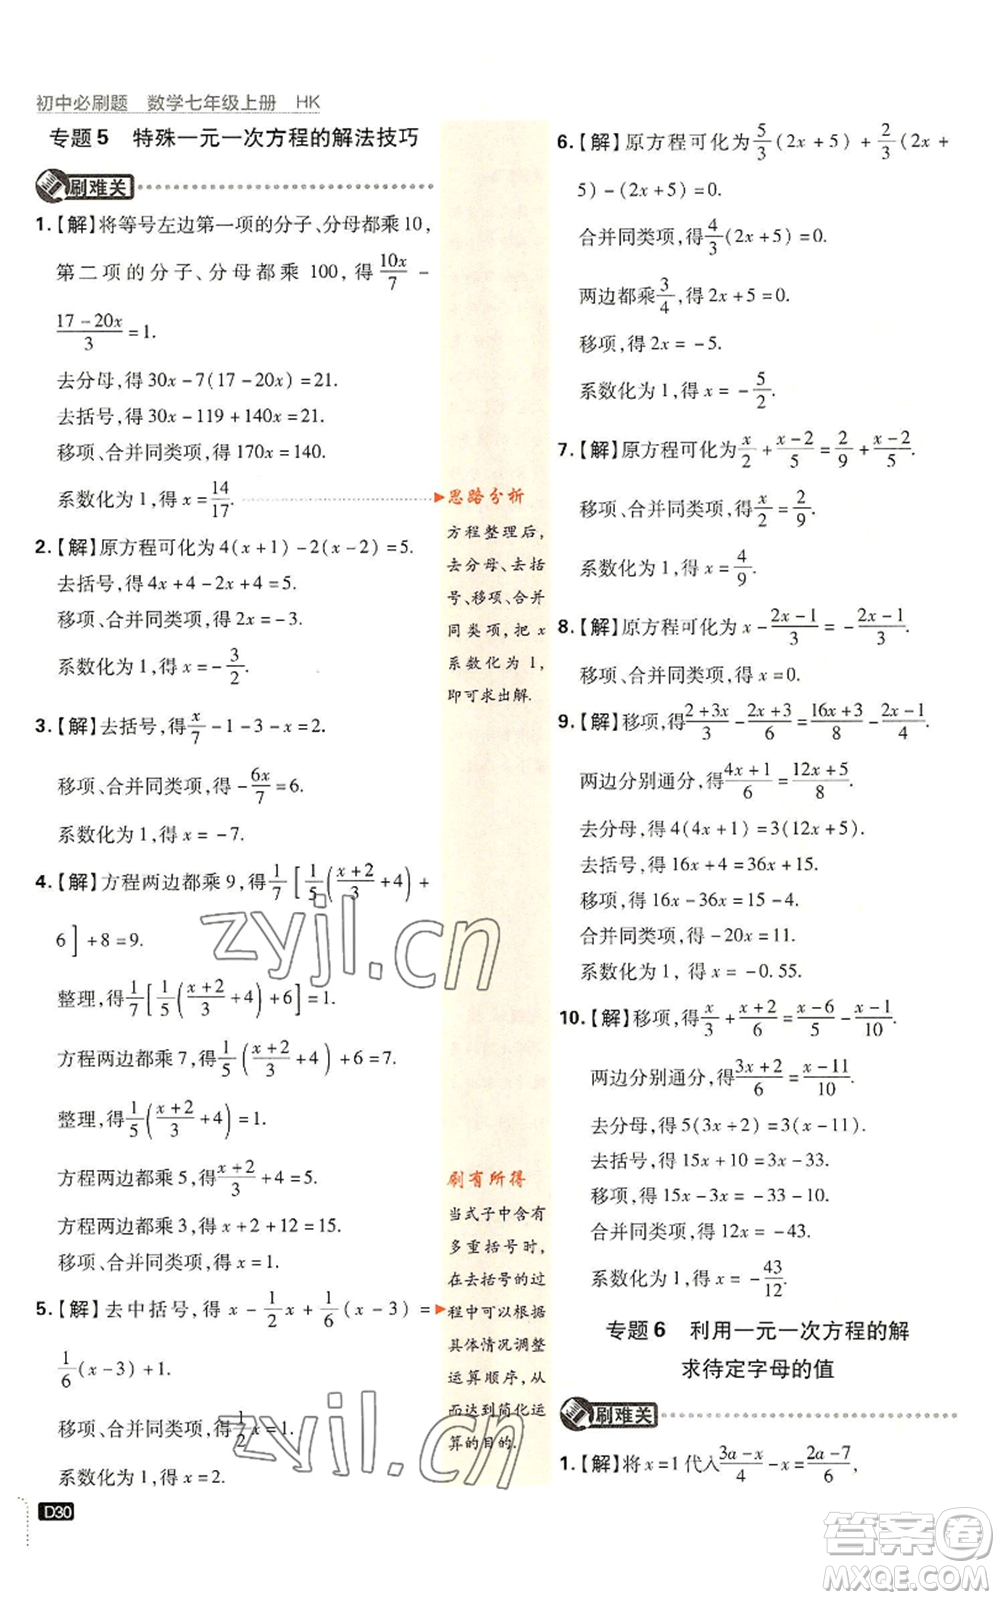 初中必刷题　数学七年级上册　HK
专题 5　特殊一元一次方程的解法技巧
刷难关
1.【解】将等号左边第一项的分子、分母都乘 10,
第二项的分子、分母都乘 100, 得 10x/7 −
(17−20x)/3 = 1.
去分母, 得 30x−7(17−20x)=21.
去括号, 得 30x−119+140x=21.
移项、合并同类项, 得 170x=140.
系数化为 1, 得 x=14/17.
2.【解】原方程可化为 4(x+1)−2(x−2)=5.
去括号, 得 4x+4−2x+4=5.
移项、合并同类项, 得 2x=−3.
系数化为 1, 得 x=−3/2.
3.【解】去括号, 得 x/7−1−3−x=2.
移项、合并同类项, 得 −6x/7=6.
系数化为 1, 得 x=−7.
4.【解】方程两边都乘 9, 得 1/7[1/5((x+2)/3+4)+
6]+8=9.
整理, 得 1/7[1/5((x+2)/3+4)+6]=1.
方程两边都乘 7, 得 1/5((x+2)/3+4)+6=7.
整理, 得 1/5((x+2)/3+4)=1.
方程两边都乘 5, 得 (x+2)/3+4=5.
方程两边都乘 3, 得 x+2+12=15.
移项、合并同类项, 得 x=1.
5.【解】去中括号, 得 x−1/2x+1/6(x−3)=
1/6(x−3).
移项、合并同类项, 得 1/2x=1.
系数化为 1, 得 x=2.
D30
思路分析
方程整理后,
去分母、去括
号、移项、合并
同类项, 把 x
系数化为 1,
即可求出解.
刷有所得
当式子中含有
多重括号时,
在去括号的过
程中可以根据
具体情况调整
运算顺序, 从
而达到简化运
算的目的.
6.【解】原方程可化为 5/3(2x+5)+2/3(2x+
5)−(2x+5)=0.
合并同类项, 得 4/3(2x+5)=0.
两边都乘 3/4, 得 2x+5=0.
移项, 得 2x=−5.
系数化为 1, 得 x=−5/2.
7.【解】原方程可化为 x/2+(x−2)/5=2/9+(x−2)/5.
移项、合并同类项, 得 x/2=2/9.
系数化为 1, 得 x=4/9.
8.【解】原方程可化为 x−(2x−1)/3=−(2x−1)/3.
移项、合并同类项, 得 x=0.
9.【解】移项, 得 (2+3x)/3−(2x+3)/6=(16x+3)/8−(2x−1)/4.
两边分别通分, 得 (4x+1)/6=(12x+5)/8.
去分母, 得 4(4x+1)=3(12x+5).
去括号, 得 16x+4=36x+15.
移项, 得 16x−36x=15−4.
合并同类项, 得 −20x=11.
系数化为 1, 得 x=−0.55.
10.【解】移项, 得 x/3+(x+2)/6=(x−6)/5−(x−1)/10.
两边分别通分, 得 (3x+2)/6=(x−11)/10.
去分母, 得 5(3x+2)=3(x−11).
去括号, 得 15x+10=3x−33.
移项, 得 15x−3x=−33−10.
合并同类项, 得 12x=−43.
系数化为 1, 得 x=−43/12.
专题 6　利用一元一次方程的解
求待定字母的值
刷难关
1.【解】将 x=1 代入 (3a−x)/4−x=(2a−7)/6,
zyjl.cn
zyjl.cn
答案圈
MXQE.COM